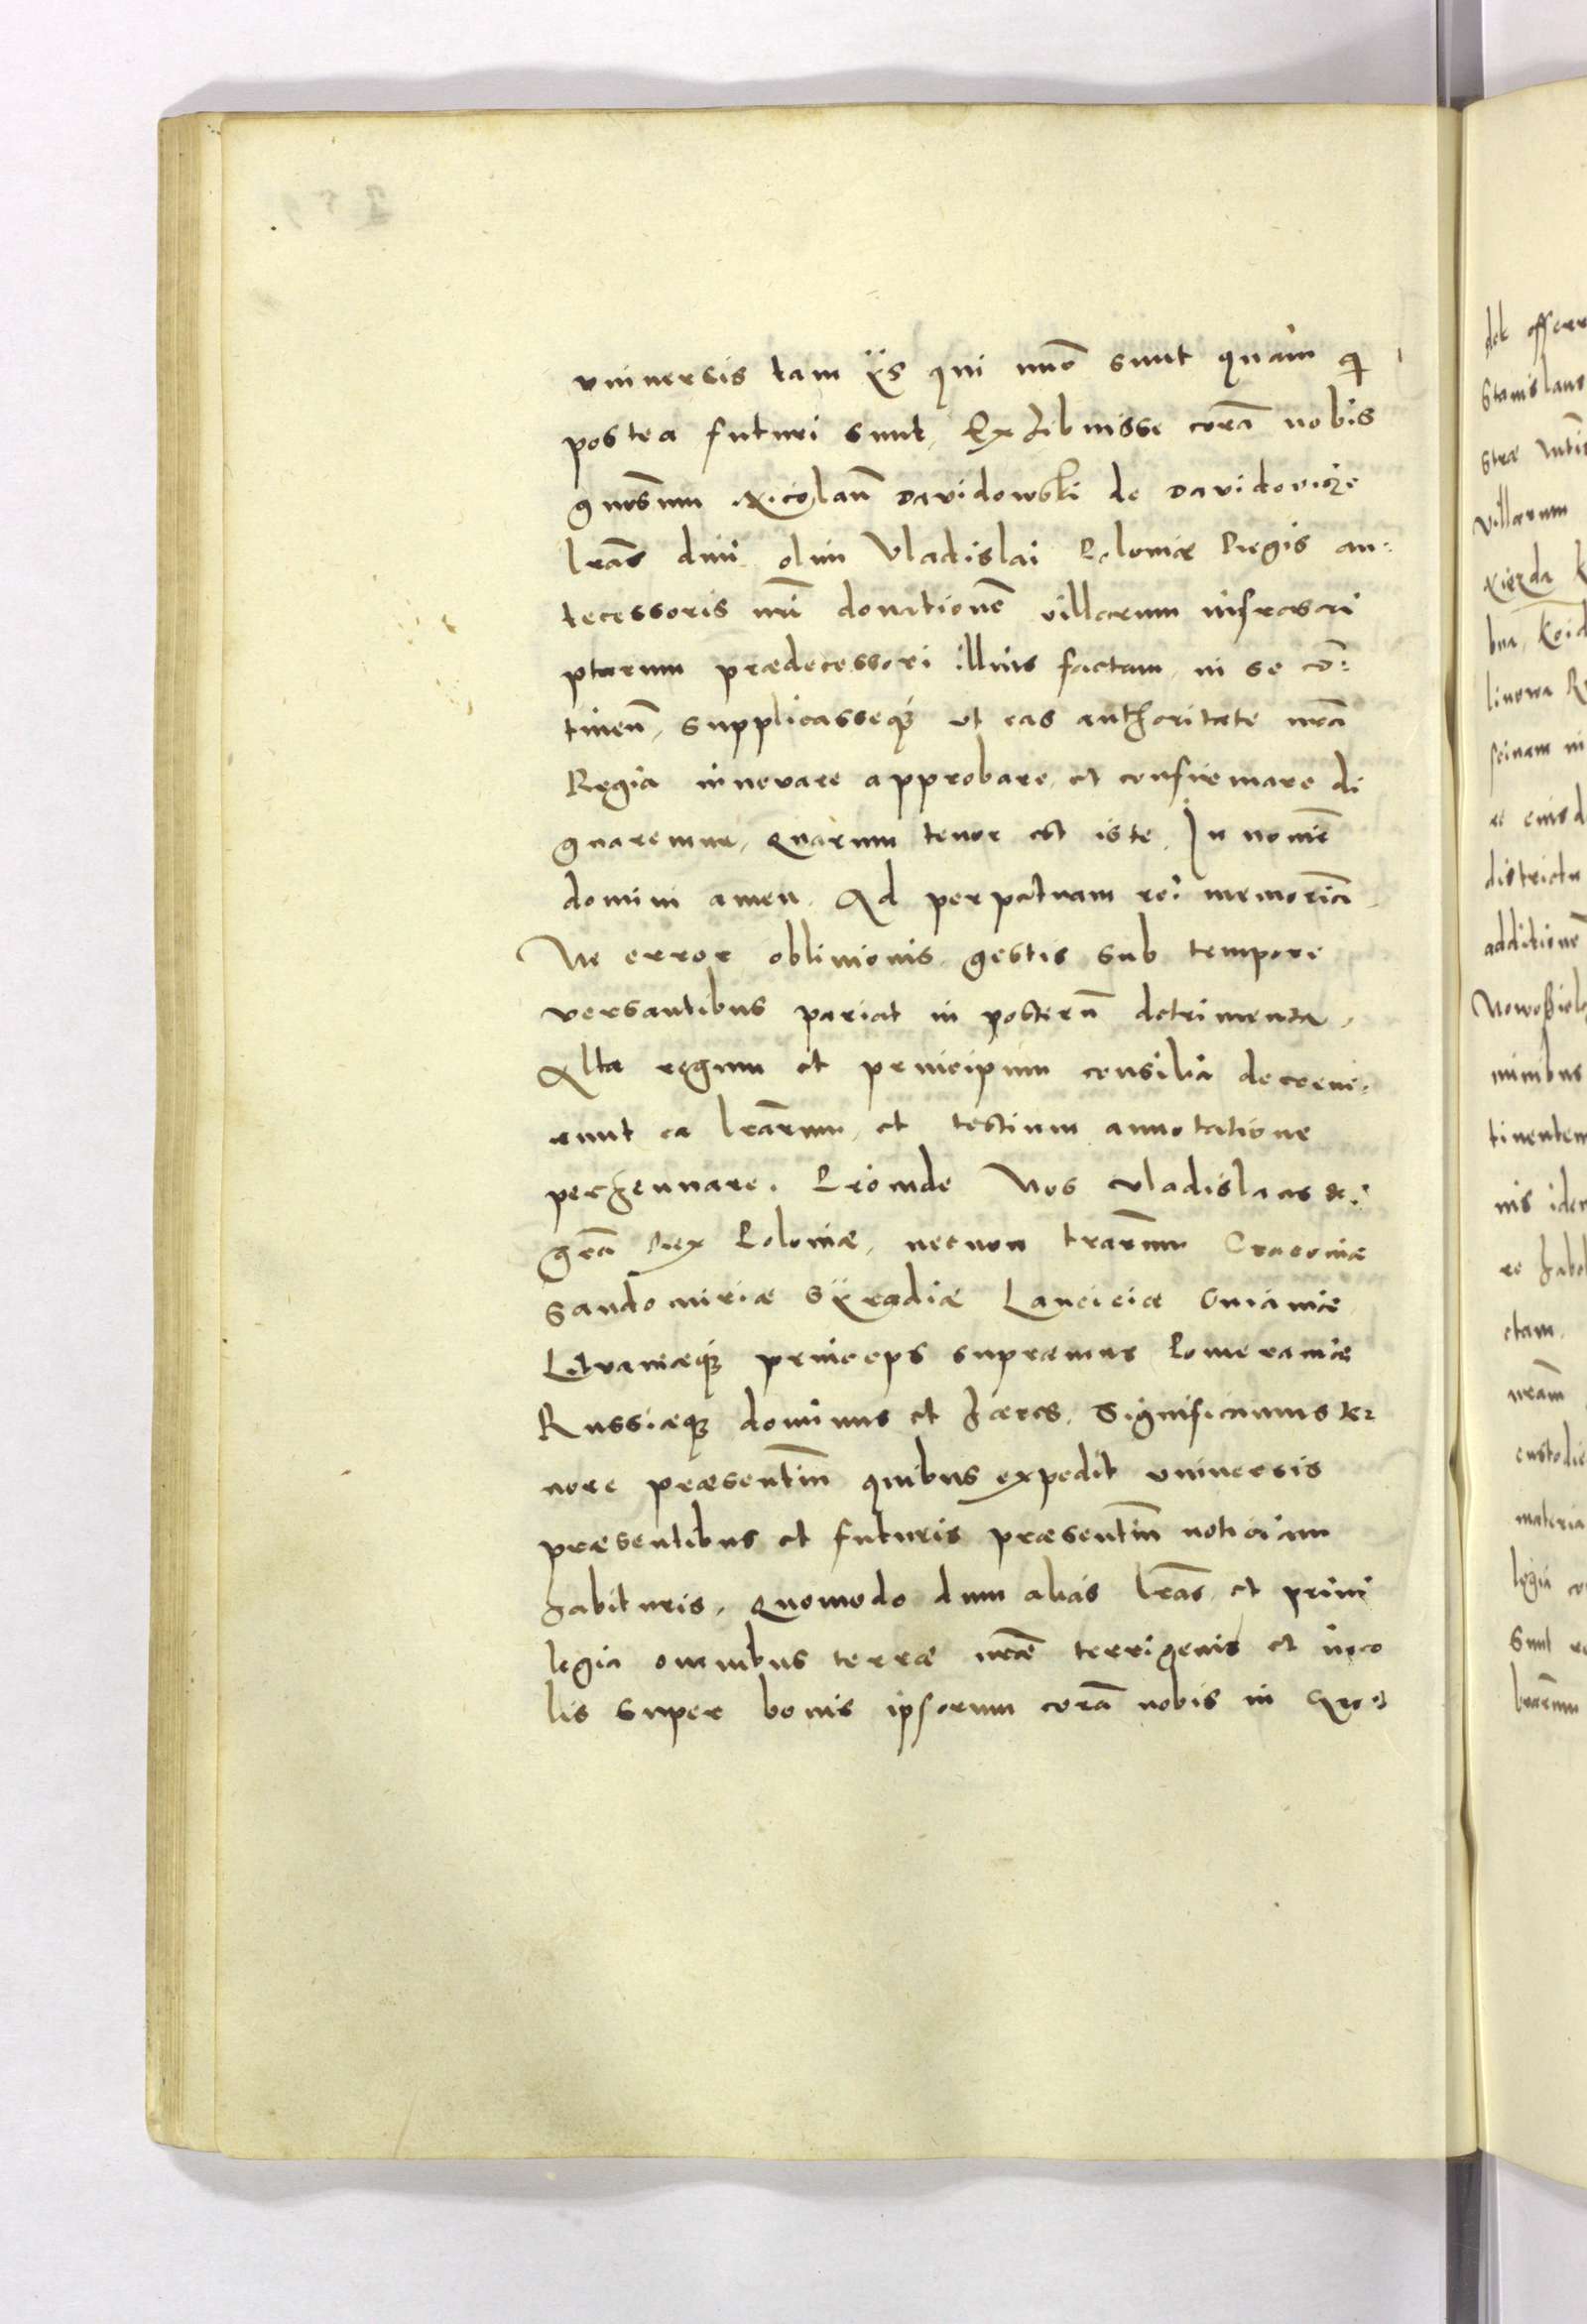 vniuersis tam ijs qui nūc sunt quam q̄
postea futuri sunt, Exhibuisse corā nobis
gnosum Nicolaū Dauidowski de Dauidowicze
lrās diui olim Vladislai Poloniæ Regis an-
tecessoris nrī donationē villarum infrascri
ptarum prædecessori illius factam, in se cō-
tineñ, supplicasseq; vt eas authoritate nrā
Regia innouare approbare et confirmare di
gnaremur, Quarum tenor est iste. In nomīe
domini amen. Ad perpetuam rei memoriā.
Ne error obliuionis gestis sub tempore
versantibus pariat in posterū detrimenta,
Alta regum et principum consilia decreue-
runt ea lrārum, et testium annotatione
perhennare. Proinde Nos Vladislaus dei
grā Rex Poloniæ, necnon trārum Cracouiæ
Sandomiriæ Syradiæ Lanciciæ Cuiauiæ
Lituaniæq; princeps supræmus Pomeraniæ
Russiæq; dominus et hæres. Significamus te-
nore præsentiū quibus expedit vniuersis
præsentibus et futuris præsentiū noticiam
habituris, Quomodo dum alias lrās et priui
legia omnibus terræ nræ terrigenis et inco
lis super bonis ipsorum corā nobis in
del offerr
Stanislaus
stræ
villarum
bna
linowa
districtu
additione
minibus
tinentem
nis iden
re habe
ctam
nram
custodie
materia
legia co
Sunt